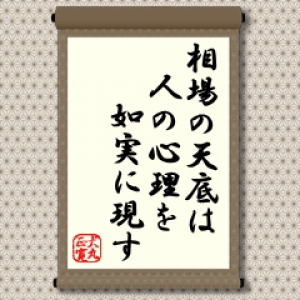 相場の天底は
人の心理を
如実に現す